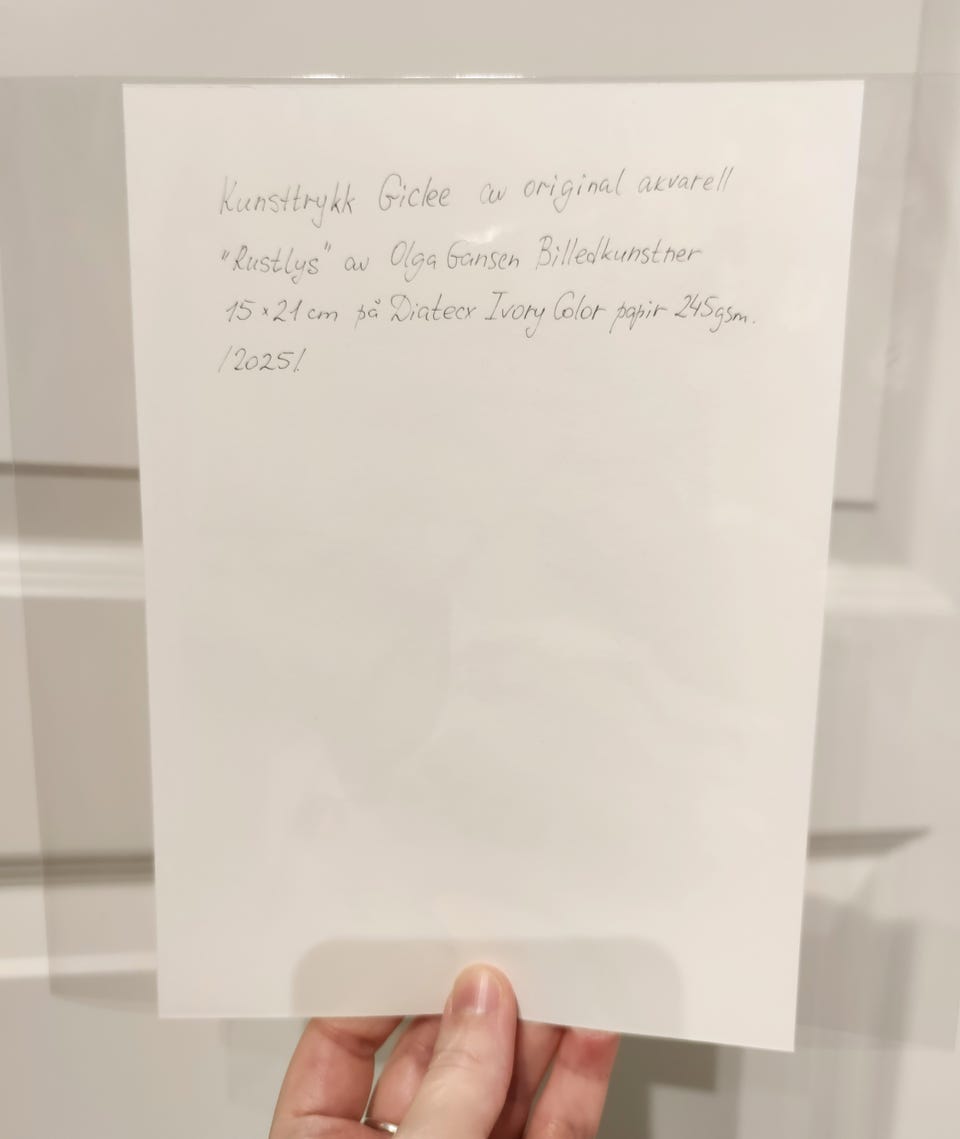 Kunsttrykk Giclee av original akvarell
"Rustlys" av Olga Gansen Billedkunstner
15 × 21 cm på Diatecx Ivory Color papir 245gsm.
/2025/.